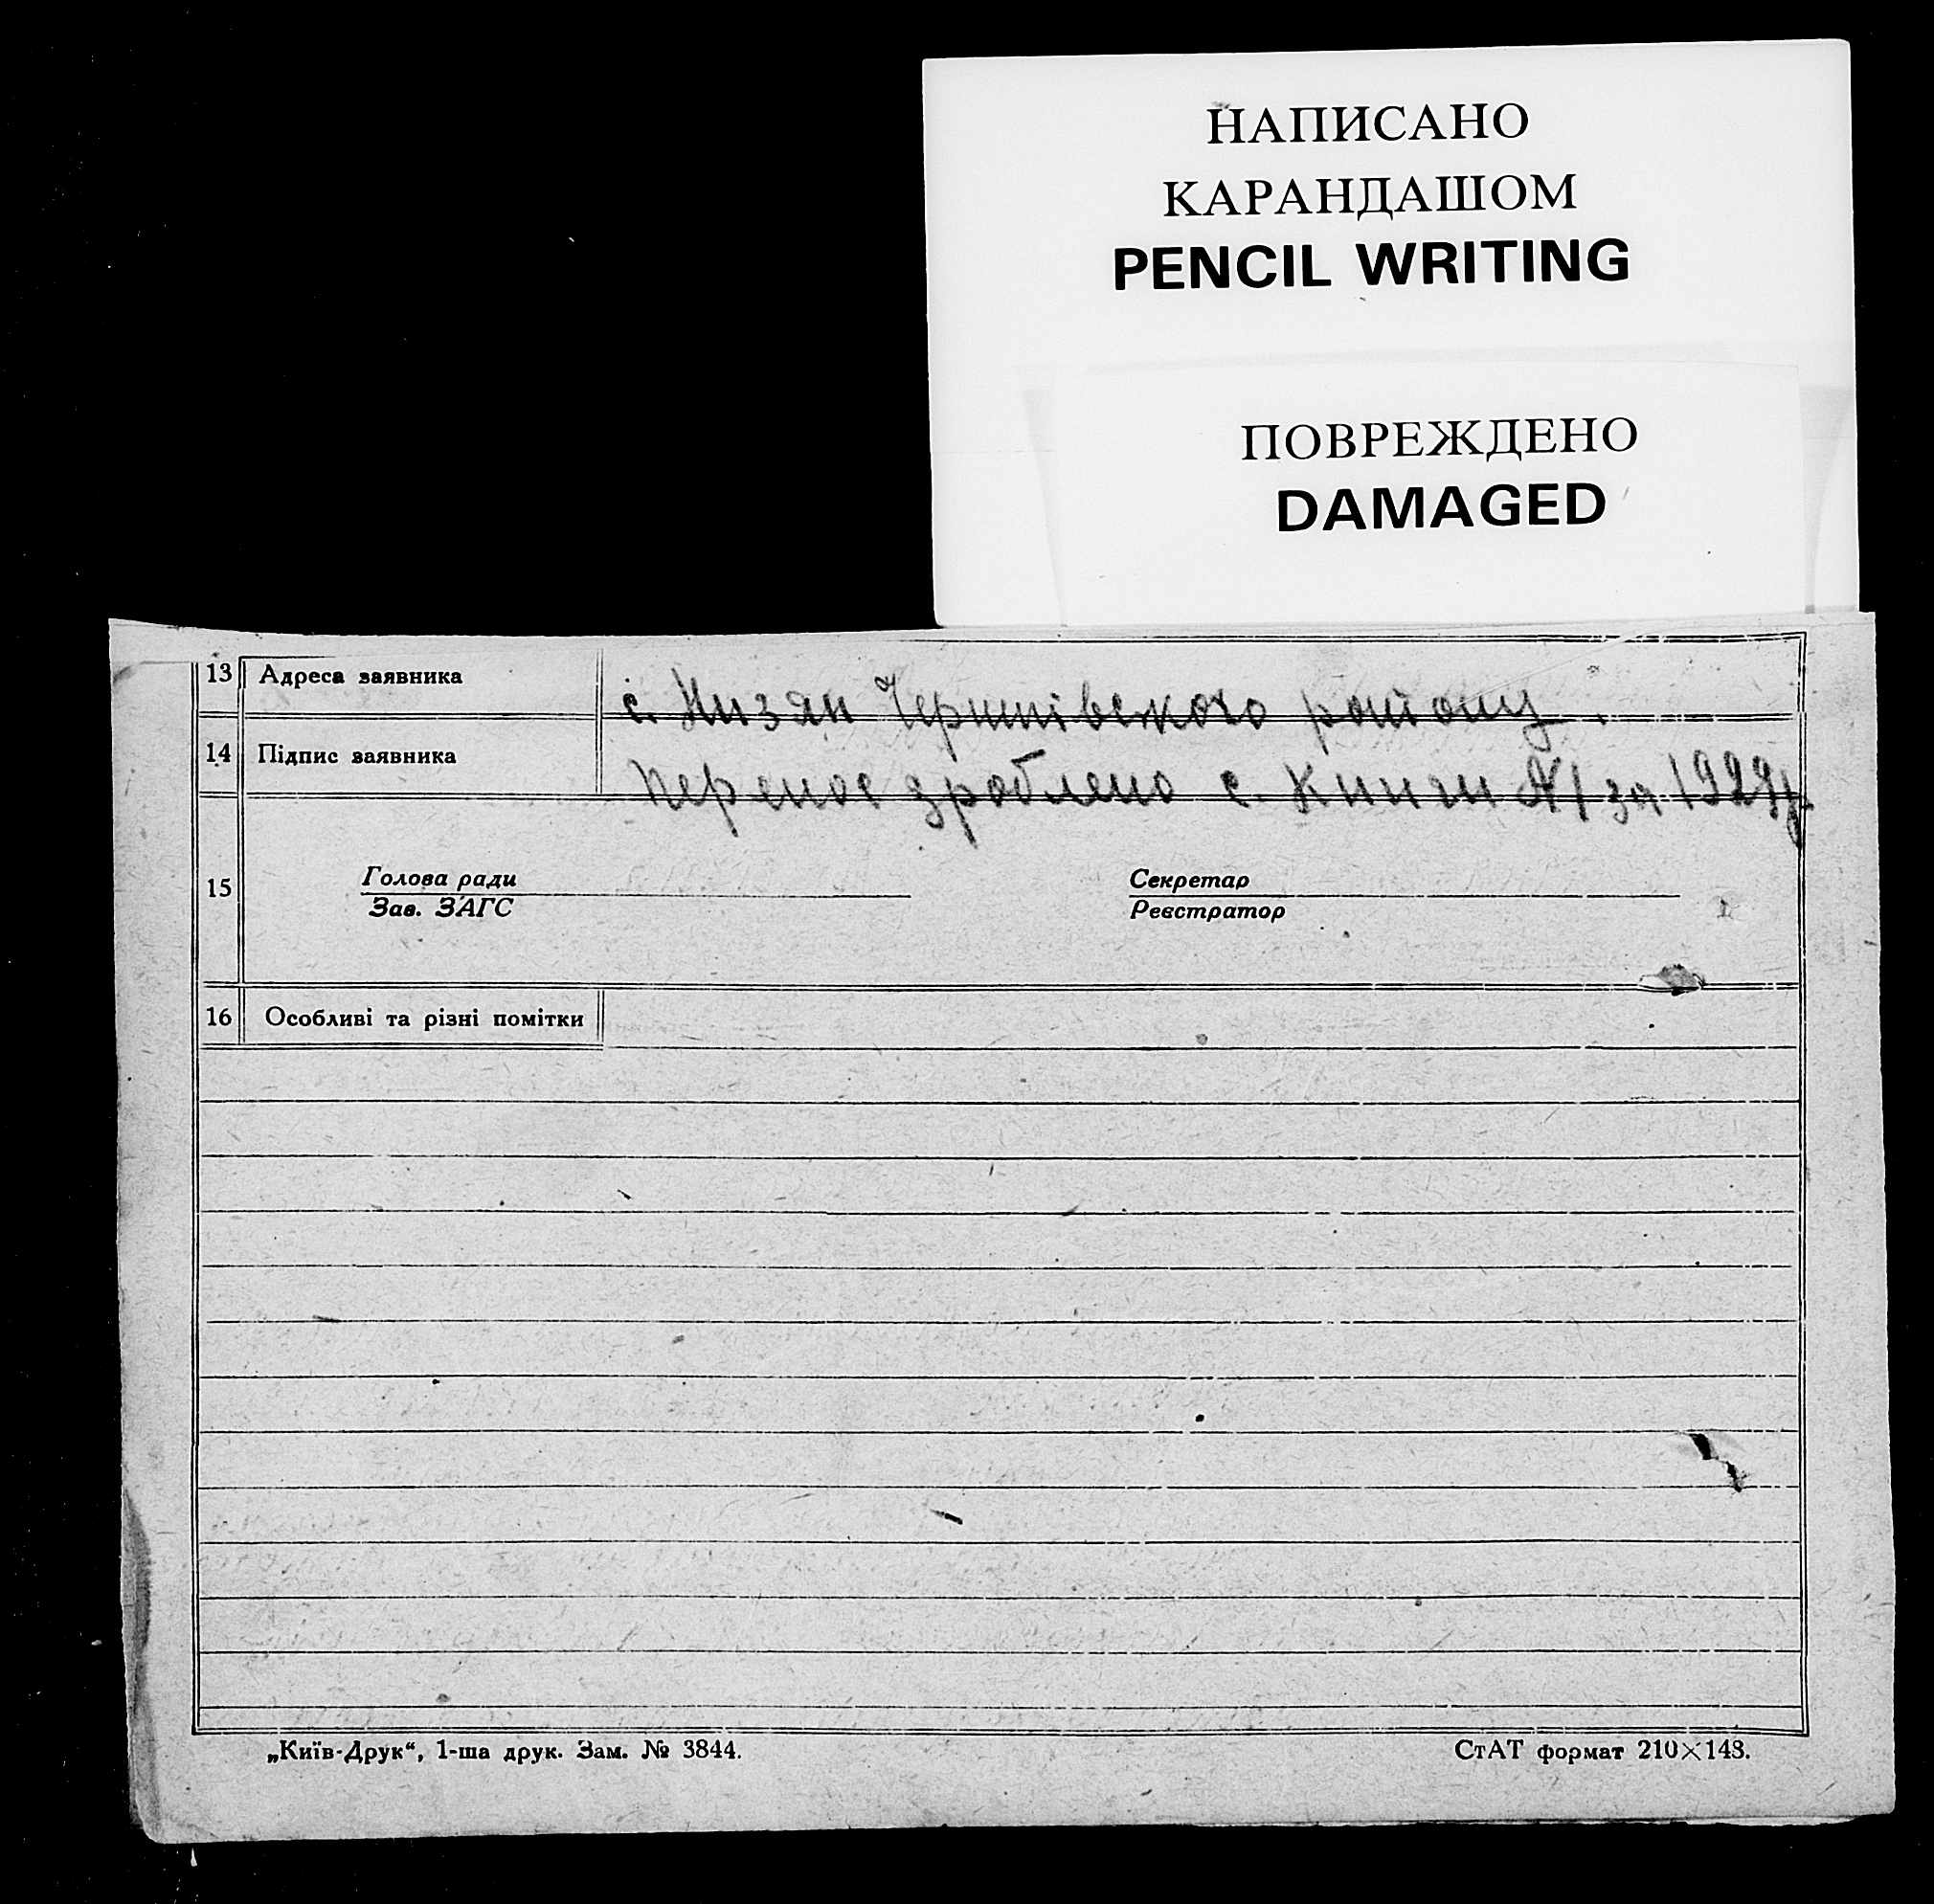 НАПИСАНО
КАРАНДАШОМ
PENCIL WRITING
ПОВРЕЖДЕНО
DAMAGED
13 Адреса заявника
с. району
14 Підпис заявника
перенос зроблено с. книги №1 за 1929р.
15 Голова ради Секретар
Зав. ЗАГС Реєстратор
16 Особливі та різні помітки
„Київ-Друк“, 1-ша друк. Зам. № 3844. СтАТ формат 210×148.